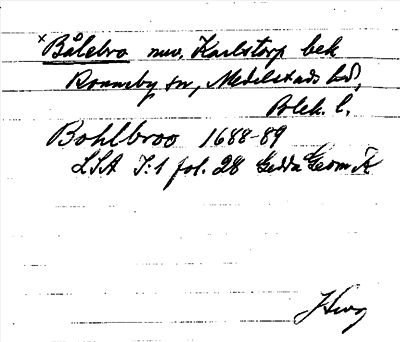 × Bålebro nuv. Karlstorp bek
Ronneby sn, Medelstads hd,
Blek. l.
Bohlbroo 1688-89
LSA I:1 fol. 28 Gedda Geom K